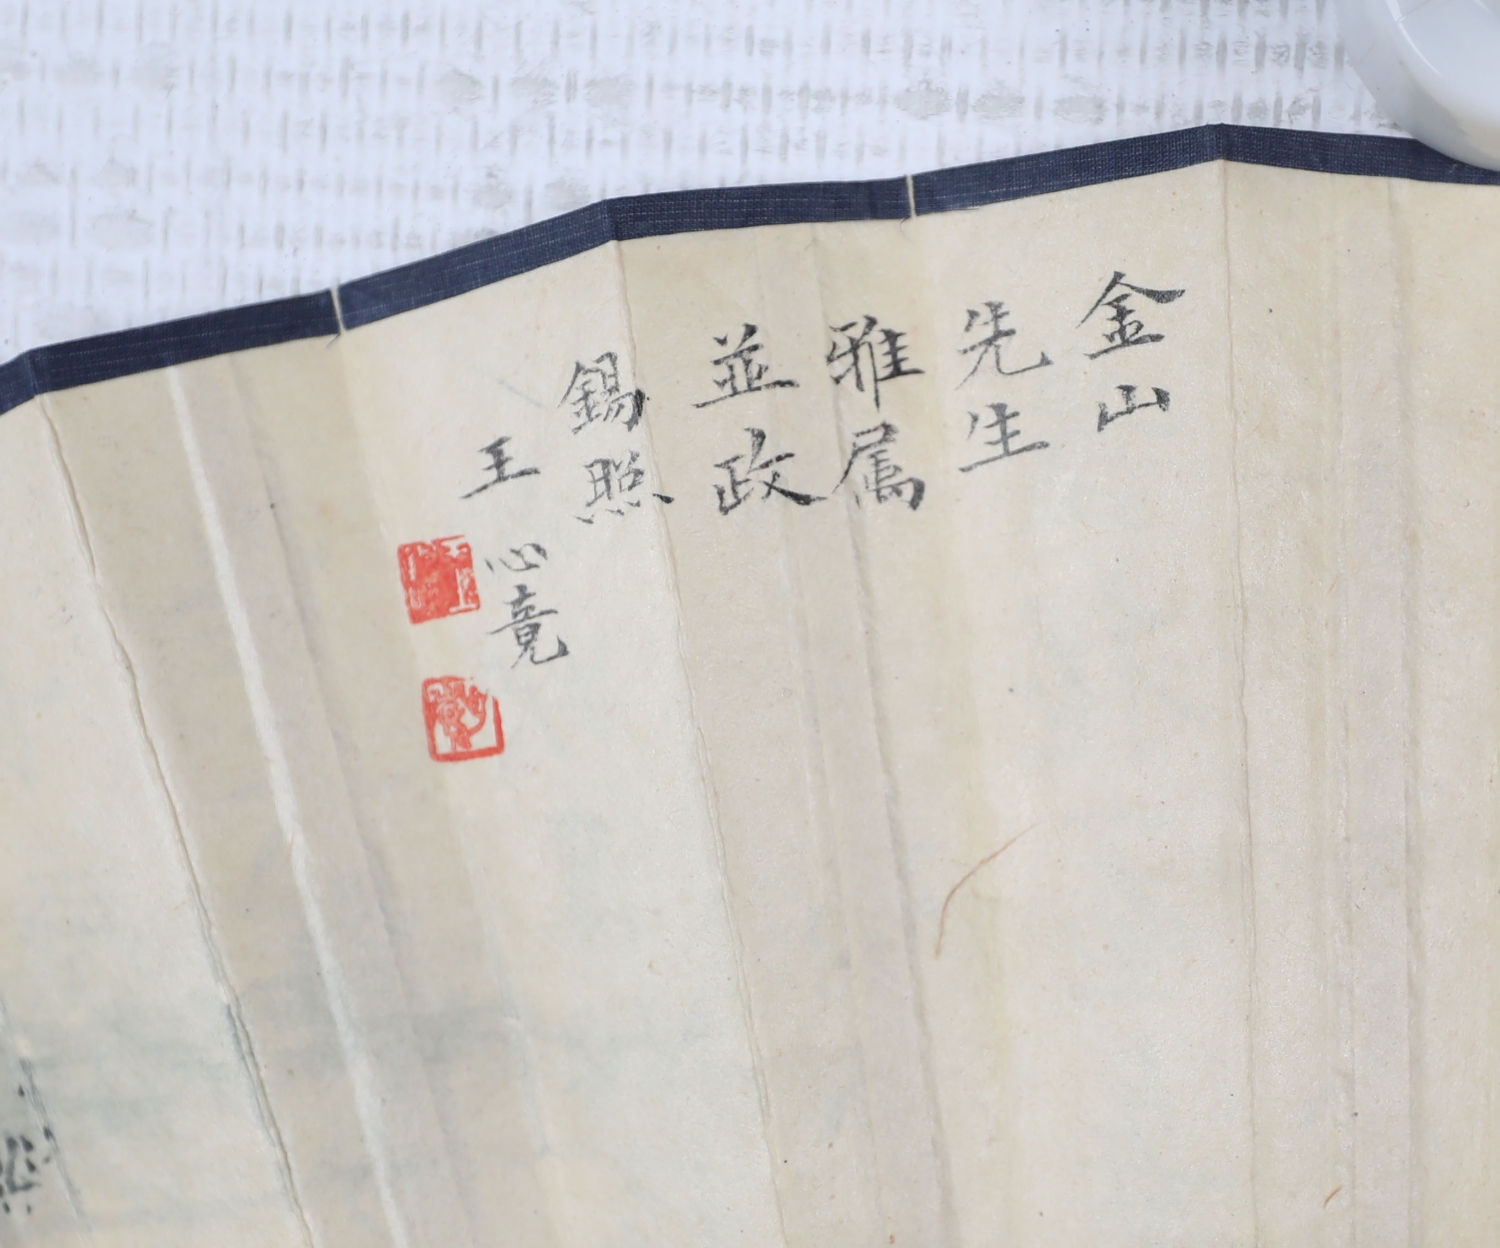 金山
先生
雅属
並政
錫照
王心竟